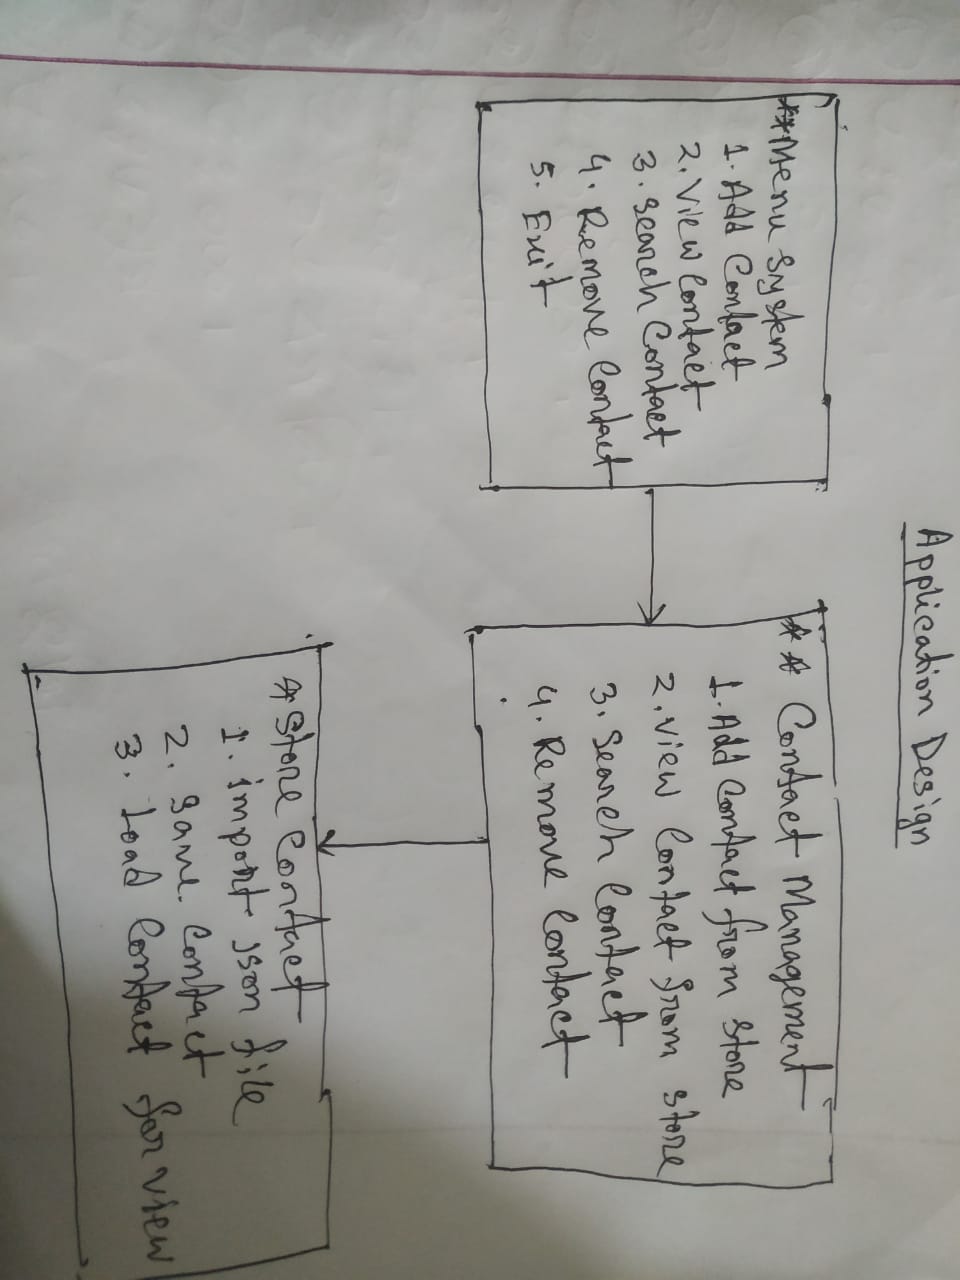 Application Design
**Menu System
1. Add Contact
2. View Contact
3. Search Contact
4. Remove Contact
5. Exit
** Contact Management
1. Add Contact from store
2. View Contact from store
3. Search Contact
4. Remove Contact
*Store Contact
1. import json file
2. Save Contact
3. Load Contact for view